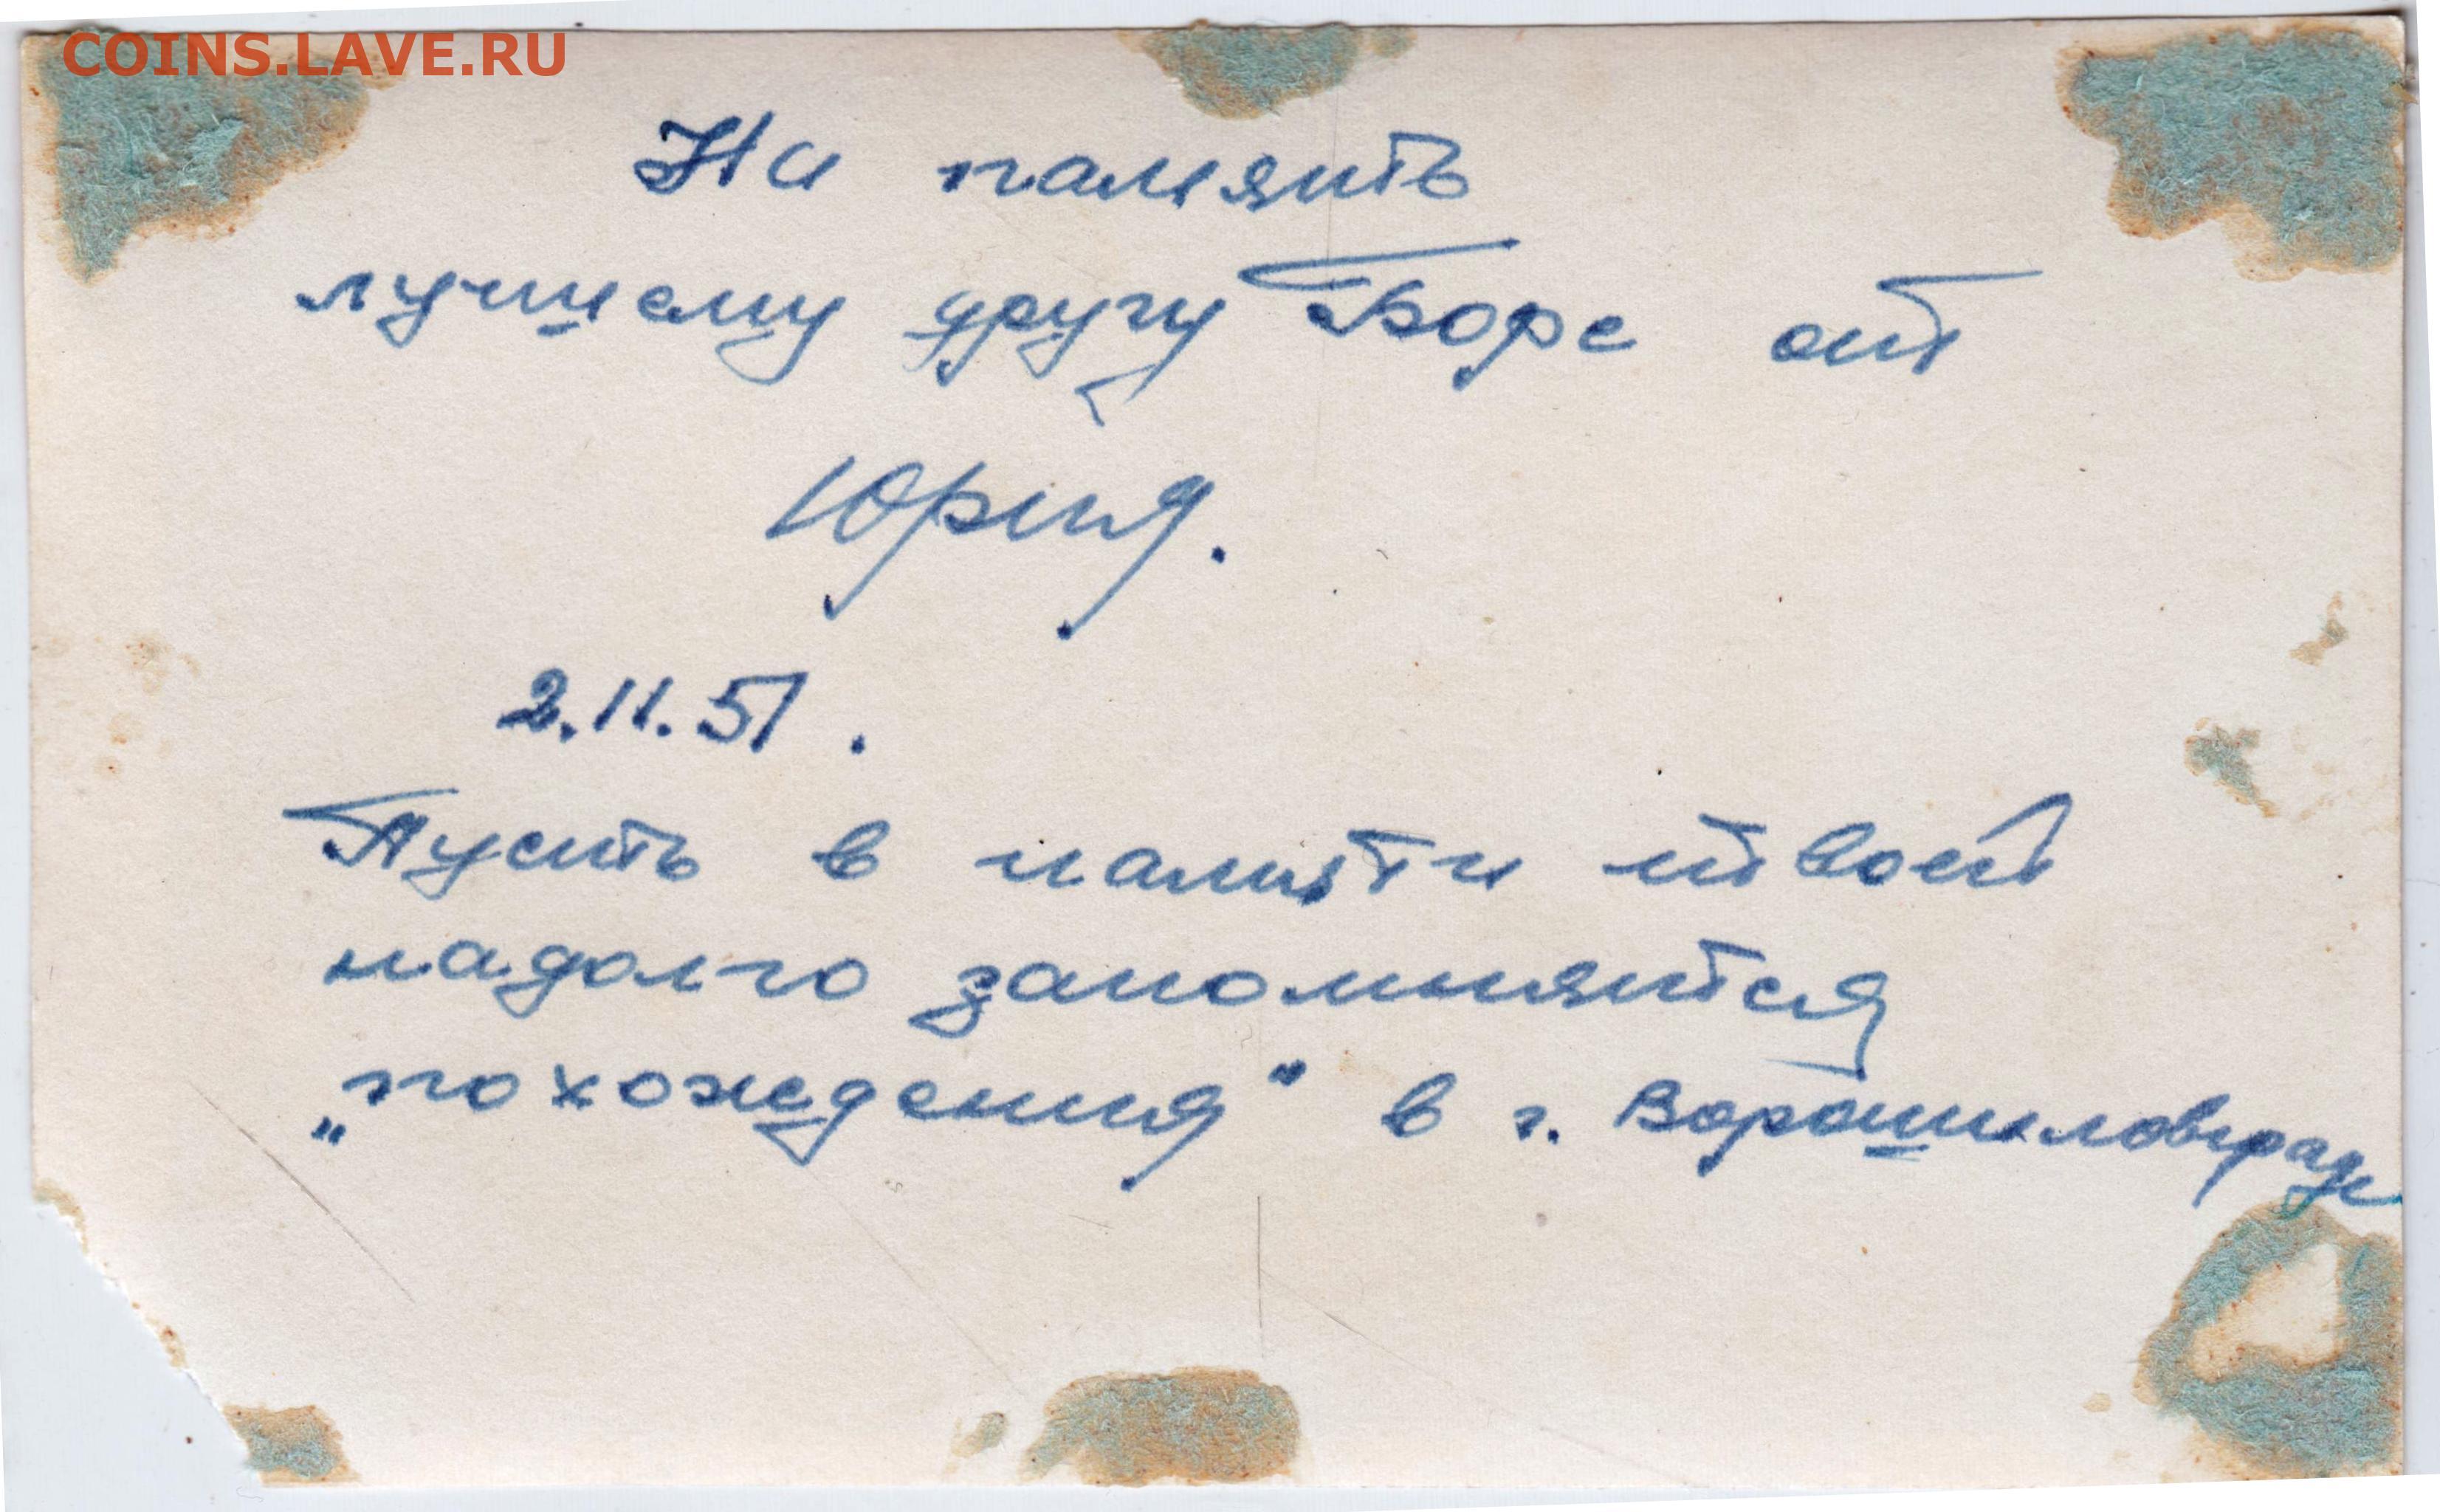 COINS.LAVE.RU
На память
лучшему другу Боре от
Юрия.
2.11.51.
Пусть в памяти твоей
надолго запомнятся
„похождения“ в г. Ворошиловграде